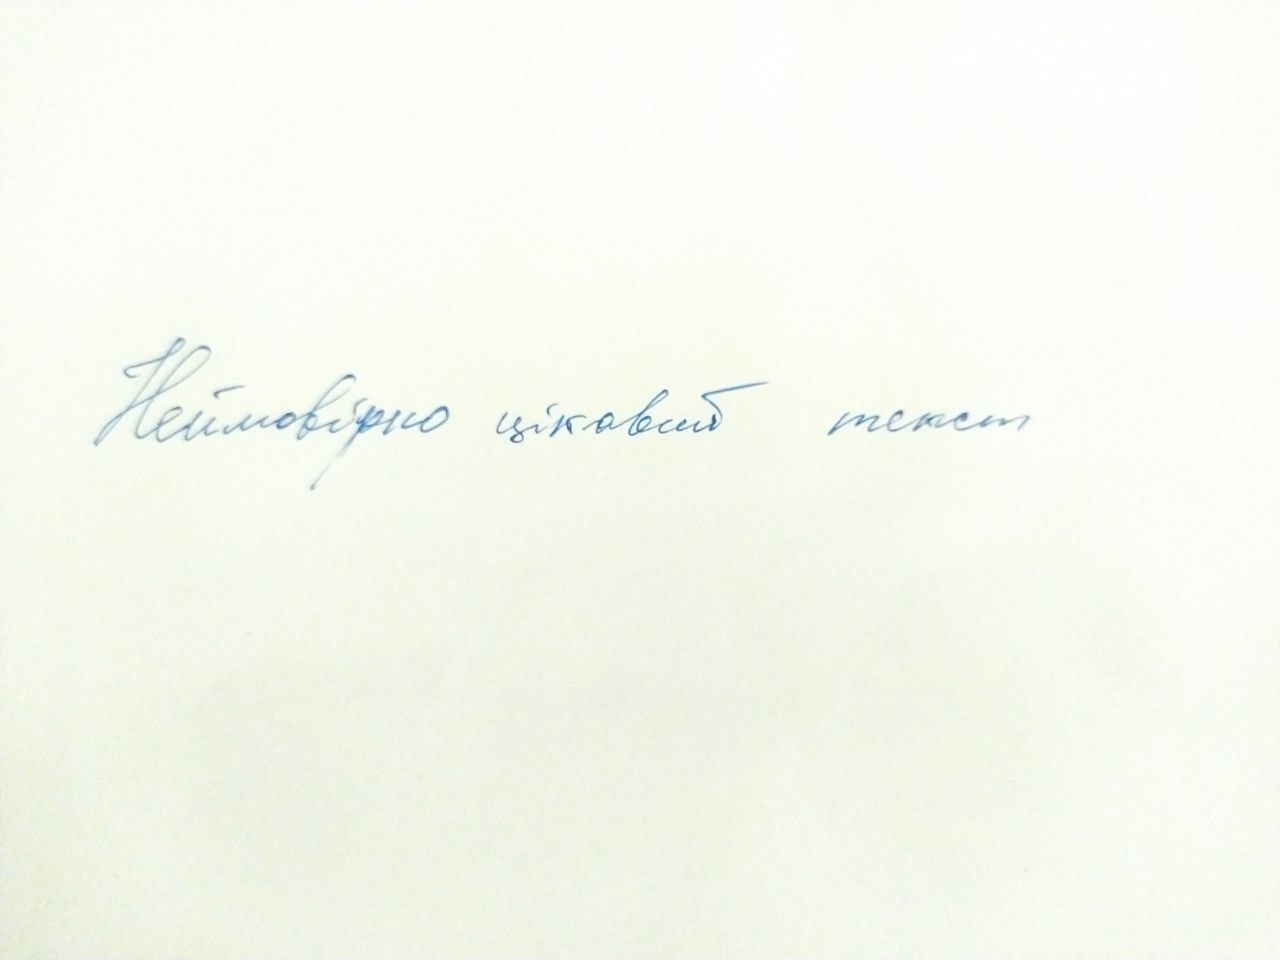 Неймовірно цікавий текст